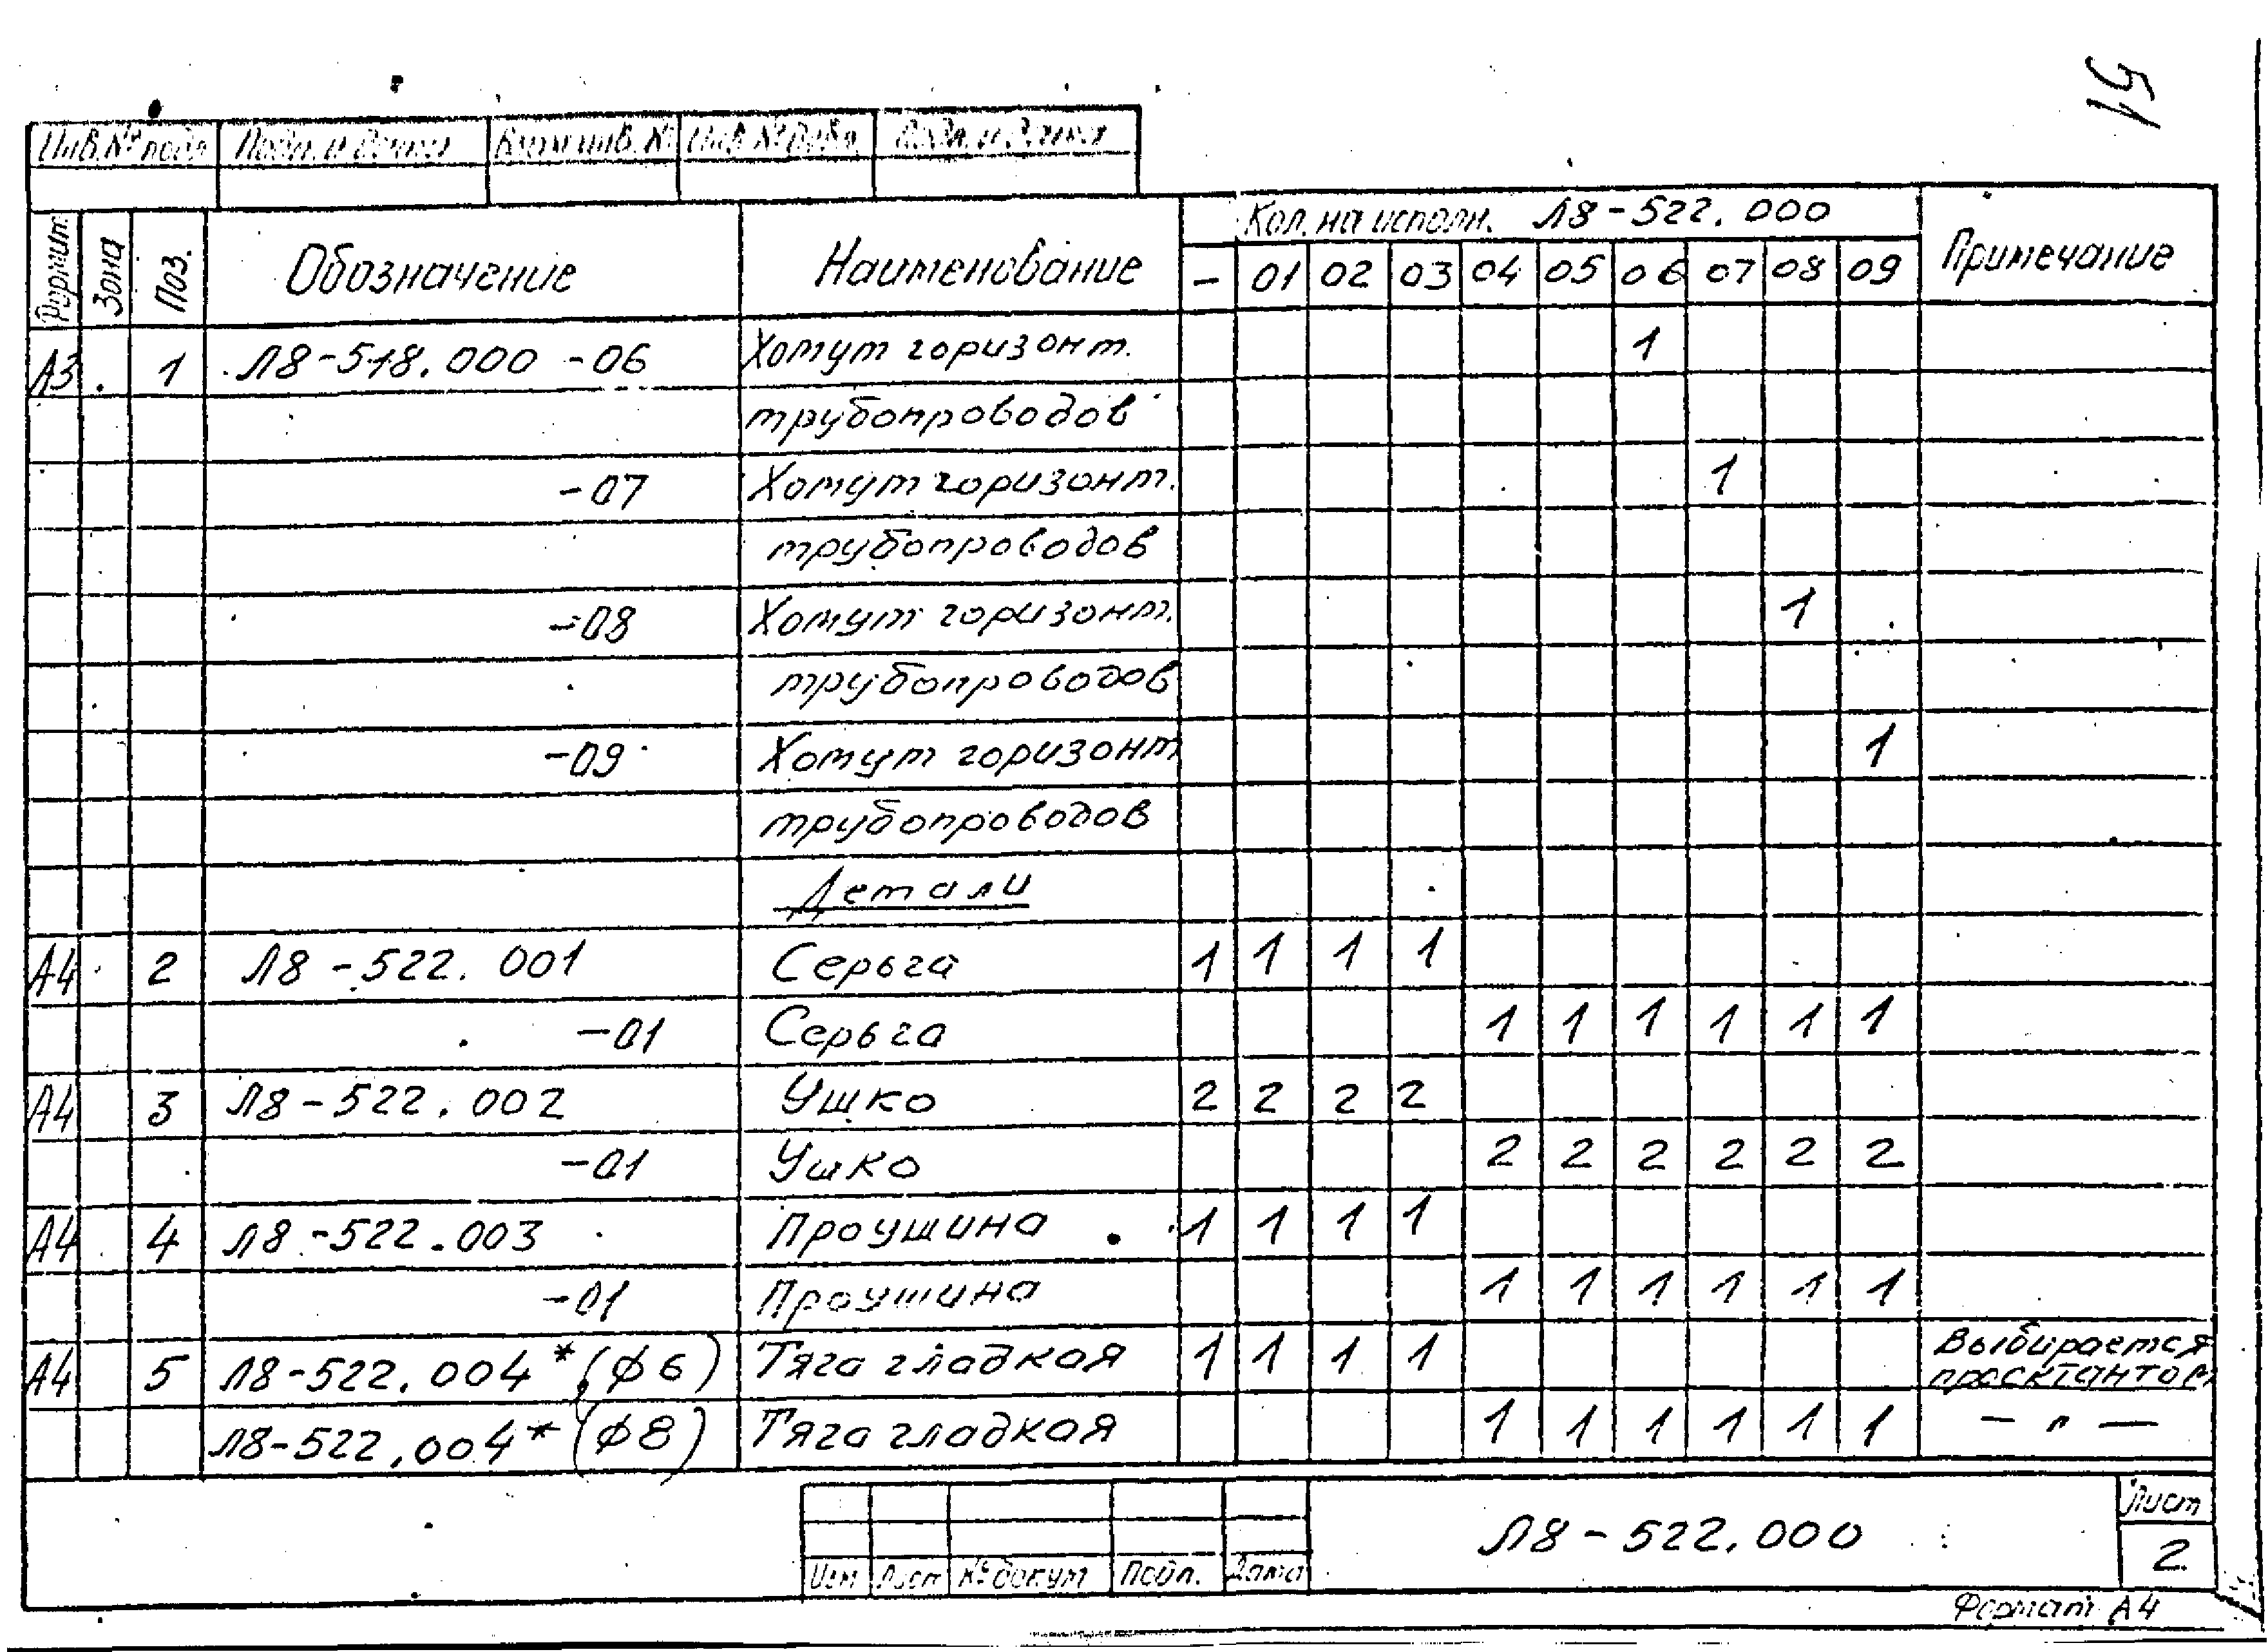 51
Инв.№ подл. Подп. и дата Взам.инв.№ Инв.№ дубл. Подп. и дата
Формат Зона Поз. Обозначение Наименование Кол. на исполн. Л8-522.000 Примечание
- 01 02 03 04 05 06 07 08 09
А3 1 Л8-518.000 -06 Хомут горизонт. 1
трубопроводов
-07 Хомут горизонт. 1
трубопроводов
-08 Хомут горизонт. 1
трубопроводов
-09 Хомут горизонт 1
трубопроводов
Детали
А4 2 Л8-522.001 Серьга 1 1 1 1
-01 Серьга 1 1 1 1 1 1
А4 3 Л8-522.002 Ушко 2 2 2 2
-01 Ушко 2 2 2 2 2 2
А4 4 Л8-522.003 Проушина 1 1 1 1
-01 Проушина 1 1 1 1 1 1
А4 5 Л8-522.004*(ф6) Тяга гладкая 1 1 1 1 Выбирается
проектантом
Л8-522.004*(ф8) Тяга гладкая 1 1 1 1 1 1 — " —
Л8-522.000 Лист
2
Изм Лист № докум Подп. Дата
Формат А4